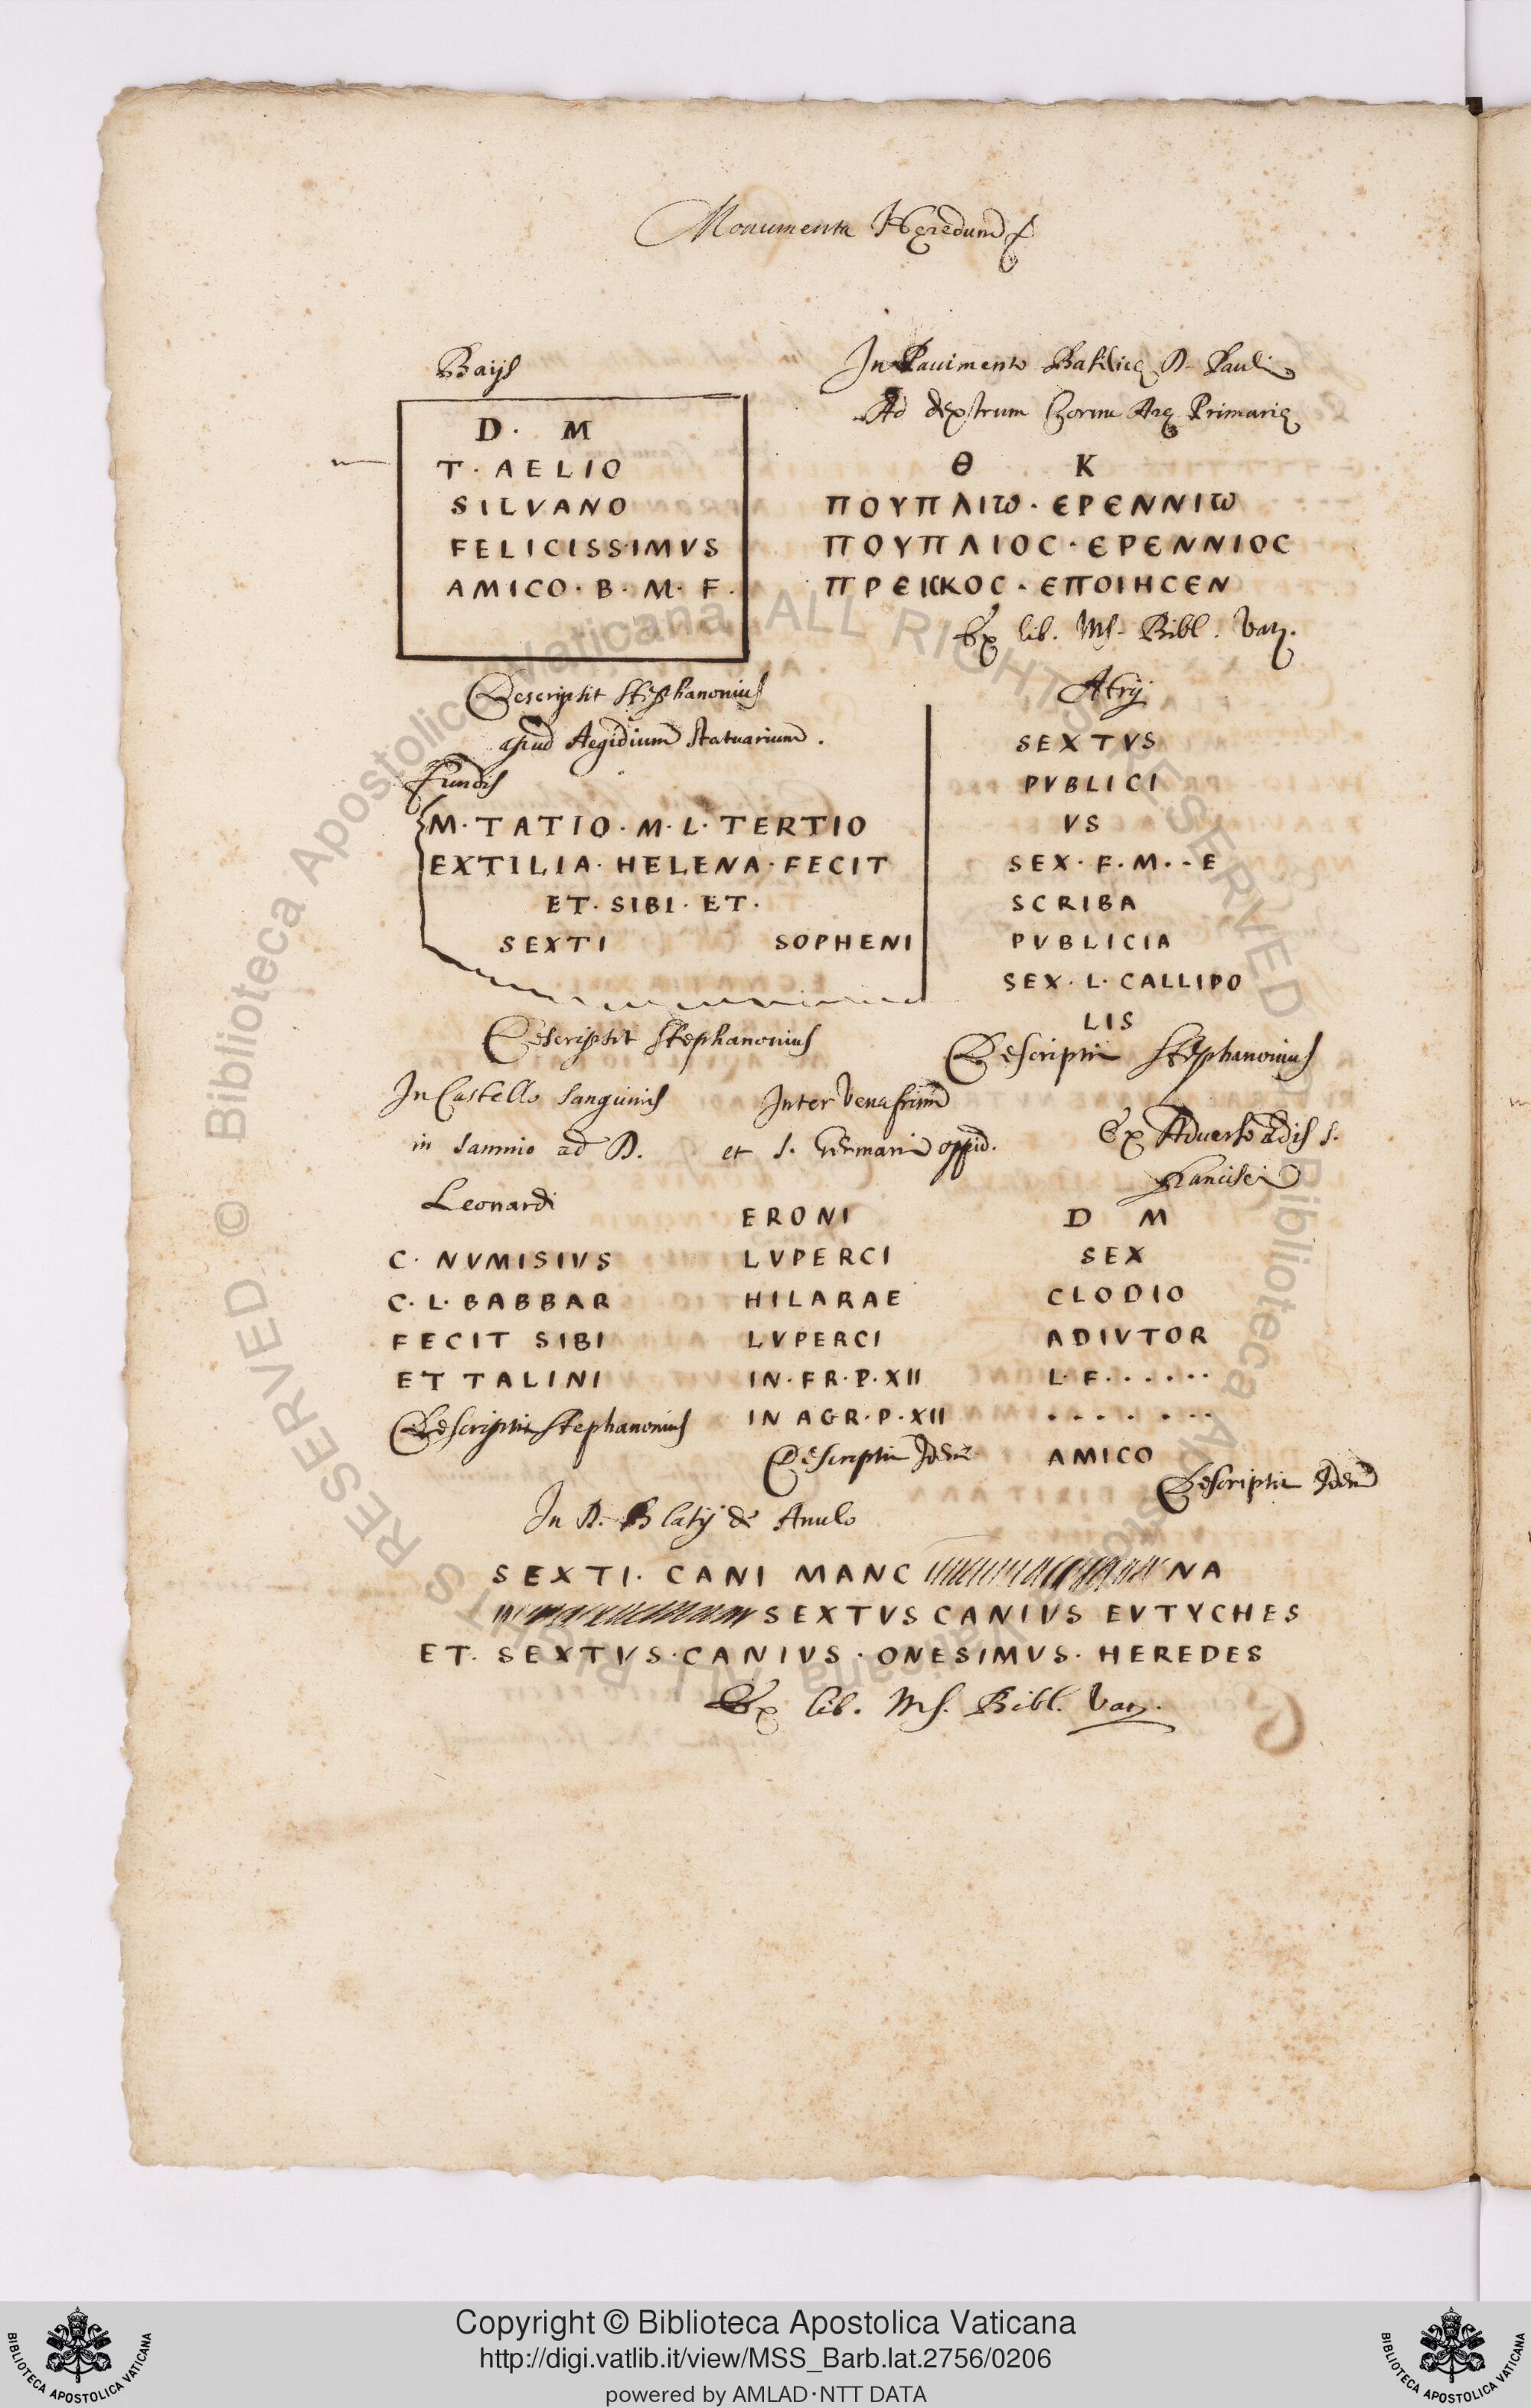 Monumenta Heredum
Baijs
D. M
T. AELIO
SILVANO
FELICISSIMVS
AMICO. B. M. F.
Descripsit Stephanonius
apud Aegidium statuarium.
In Pauimento Basilicę D. Pauli
Ad dextrum Cornu Arę Primarię
Θ K
ΠΟΥΠΛΙΩ. ΕΡΕΝΝΙΩ
ΠΟΥΠΛΙΟC. ΕΡΕΝΝΙΟC
ΠΡΕΙΚΚΟC. ΕΠΟΙΗCΕΝ
Ex lib. Ms. Bibl. Vat.
Fundis
M. TATIO. M. L. TERTIO
EXTILIA. HELENA. FECIT
ET. SIBI. ET.
SEXTI SOPHENI
Descripsit Stephanonius
SEXTVS
PVBLICI
VS
SEX. F. M. - E
SCRIBA
PVBLICIA
SEX. L. CALLIPO
LIS
Descripsit Stephanonius
In Castello Sanguinis
in Samnio ad D.
Leonardi
C. NVMISIVS
C. L. BABBAR
FECIT SIBI
ET TALINI
Descripsit Stephanonius
Inter Venafrum
et S. Germani oppid.
ERONI
LVPERCI
HILARAE
LVPERCI
IN. FR. P. XII
IN AGR. P. XII
Descripsit Idem
Ex Aduerso ædis S.
Francisci
D M
SEX
CLODIO
ADIVTOR
L. F. . . . . .
. . . . . . .
AMICO
Descripsit Idem
In D. Blasij de Anulo
SEXTI. CANI MANC NA
SEXTVS CANIVS EVTYCHES
ET. SEXTVS. CANIVS. ONESIMVS. HEREDES
Ex lib. Ms. Bibl. Vat.
© Biblioteca Apostolica Vaticana ALL RIGHTS RESERVED
© Biblioteca Apostolica Vaticana ALL RIGHTS RESERVED
BIBLIOTECA APOSTOLICA VATICANA
Copyright © Biblioteca Apostolica Vaticana
http://digi.vatlib.it/view/MSS_Barb.lat.2756/0206
powered by AMLAD·NTT DATA
BIBLIOTECA APOSTOLICA VATICANA